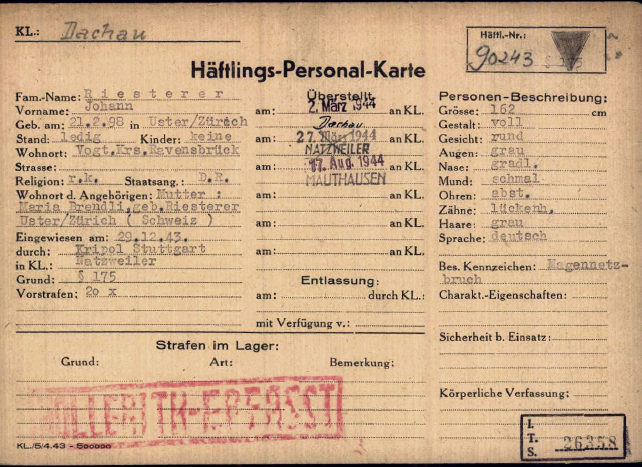 KL.: Dachau
Häftl.-Nr.:
90243 § 175
Häftlings-Personal-Karte
Fam.-Name: Riesterer
Vorname: Johann
Geb. am: 21.2.98 in Uster/Zürich
Stand: ledig Kinder: keine
Wohnort: Vogt,Krs.Ravensbrück
Strasse:
Religion: r.k. Staatsang.: D.R.
Wohnort d. Angehörigen: Mutter :
Maria Brendli,geb.Riesterer
Uster/Zürich ( Schweiz )
Eingewiesen am: 29.12.43.
durch: Kripol Stuttgart
in KL.: Natzweiler
Grund: § 175
Vorstrafen: 20 x
Überstellt
2. März 1944
am: an KL.
Dachau
am: 27. März 1944 an KL.
NATZWEILER
am: 17. Aug. 1944 an KL.
MAUTHAUSEN
am: an KL.
am: an KL.
am: an KL.
Entlassung:
am: durch KL.:
mit Verfügung v.:
Personen-Beschreibung:
Grösse: 162 cm
Gestalt: voll
Gesicht: rund
Augen: grau
Nase: gradl.
Mund: schmal
Ohren: abst.
Zähne: lückenh.
Haare: grau
Sprache: deutsch
Bes. Kennzeichen: Magennetz-
bruch
Charakt.-Eigenschaften:
Sicherheit b. Einsatz:
Körperliche Verfassung:
Strafen im Lager:
Grund: Art: Bemerkung:
HOLLERITH-ERFASST
I.
T.
S. 26358
KL./5/4.43 - 500000